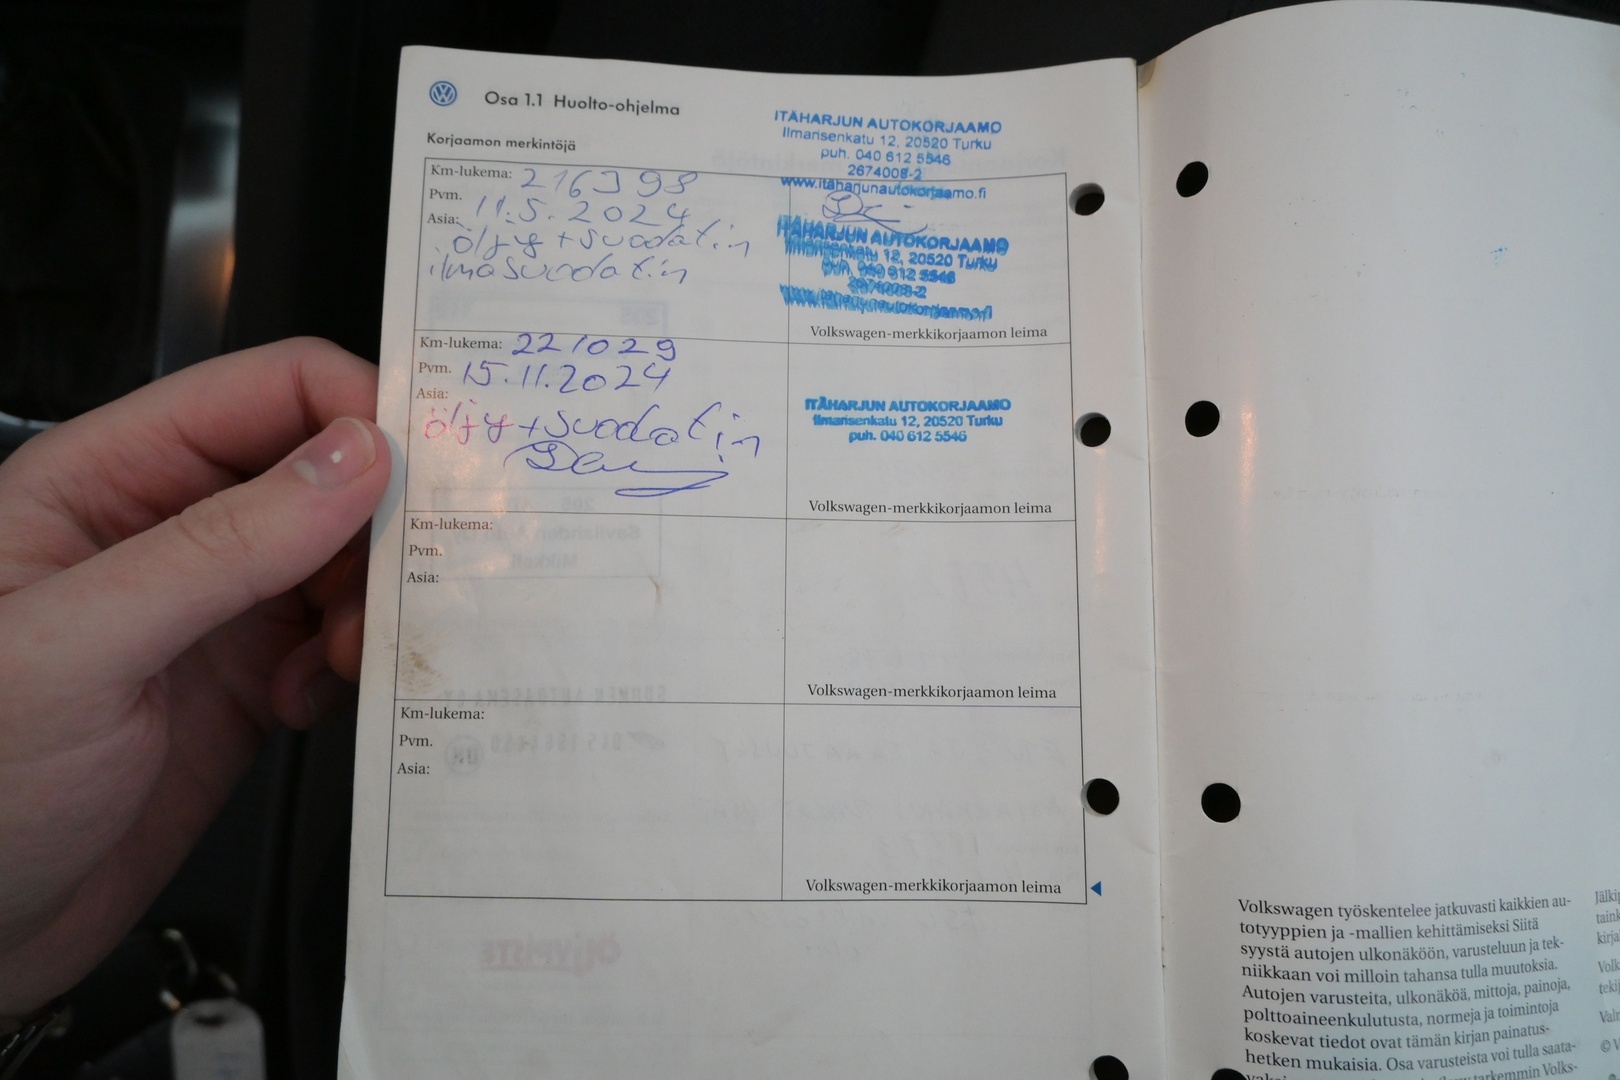 Osa 1.1 Huolto-ohjelma
Korjaamon merkintöjä
ITÄHARJUN AUTOKORJAAMO
Ilmarisenkatu 12, 20520 Turku
puh. 040 612 5546
2674008-2
www.itäharjunautokorjaamo.fi
Km-lukema: 216398
Pvm. 11.5.2024
Asia: öljy + suodatin
ilmasuodatin
ITÄHARJUN AUTOKORJAAMO
Ilmarisenkatu 12, 20520 Turku
puh. 040 612 5546
2674008-2
Volkswagen-merkkikorjaamon leima
Km-lukema: 221029
Pvm. 15.11.2024
Asia:
öljy + suodatin
ITÄHARJUN AUTOKORJAAMO
Ilmarisenkatu 12, 20520 Turku
puh. 040 612 5546
Volkswagen-merkkikorjaamon leima
Km-lukema:
Pvm.
Asia:
Volkswagen-merkkikorjaamon leima
Km-lukema:
Pvm.
Asia:
Volkswagen-merkkikorjaamon leima
Volkswagen työskentelee jatkuvasti kaikkien au-
totyyppien ja -mallien kehittämiseksi Siitä
syystä autojen ulkonäköön, varusteluun ja tek-
niikkaan voi milloin tahansa tulla muutoksia.
Autojen varusteita, ulkonäköä, mittoja, painoja,
polttoaineenkulutusta, normeja ja toimintoja
koskevat tiedot ovat tämän kirjan painatus-
hetken mukaisia. Osa varusteista voi tulla saata-